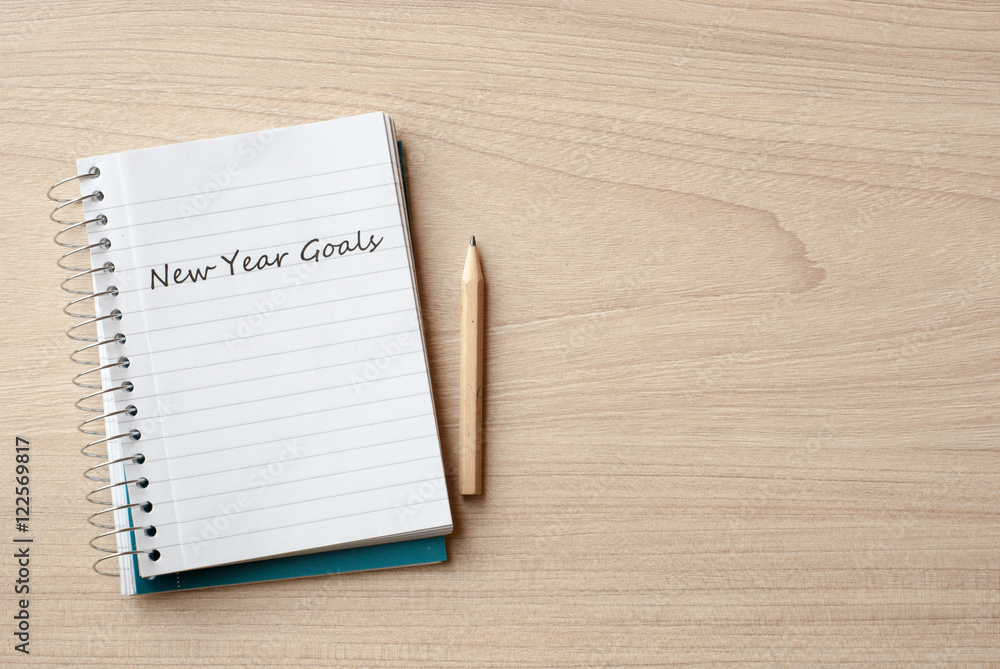 New Year Goals
Adobe Stock | #122569817